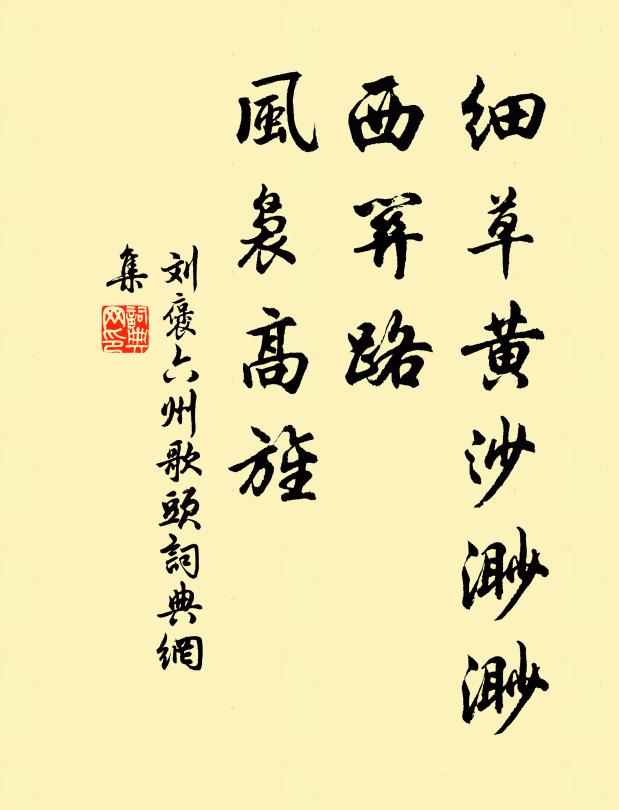 细草黄沙渺渺
西関路
風裊高旌
刘褒六州歌頭詞典網
集
詞典网印